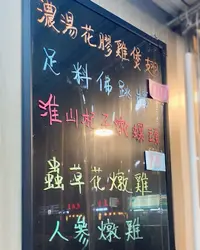 濃湯花膠雞煲翅
足料佛跳
淮山杞子燉
蟲草花燉雞
人參燉雞